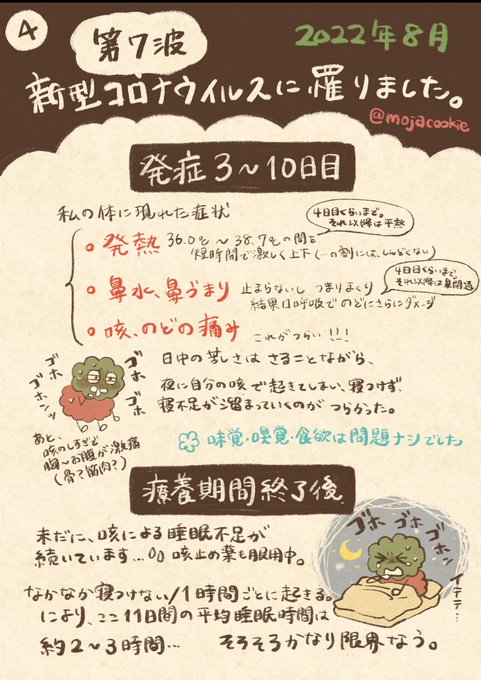 4
第7波
2022年8月
新型コロナウイルスに罹りました。
@mojacookie
発症3〜10日目
私の体に現れた症状
発熱 36.0℃〜38.7℃の間を
短時間で激しく上下(…の割には、しんどくない)
4日目くらいまで。
それ以降は平熱
鼻水、鼻づまり 止まらないし つまりまくり
結果口呼吸で のどにさらにダメージ
4日目くらいまで。
それ以降は鼻開通
咳、のどの痛み これがつらい!!!
ゴホ ゴホ
ゴホ ゴホンッ
日中の苦しさは さることながら、
夜に自分の咳で起きてしまい、寝つけず
寝不足が溜まっていくのが つらかった。
あと、
咳のしすぎで
胸〜お腹が激痛
(骨?筋肉?)
味覚・嗅覚・食欲は問題ナシでした
療養期間終了後
未だに、咳による睡眠不足が
続いています… 咳止め薬も服用中。
ゴホ ゴホ ゴホン
イテテ…
なかなか寝つけない/1時間ごとに起きる。
により、ここ11日間の平均睡眠時間は
約2〜3時間… そろそろかなり限界なう。